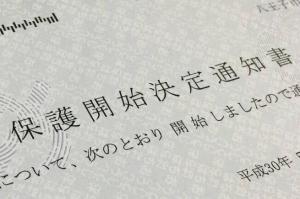 八王子市
保護開始決定通知書
について、次のとおり 開始しましたので通
平成30年